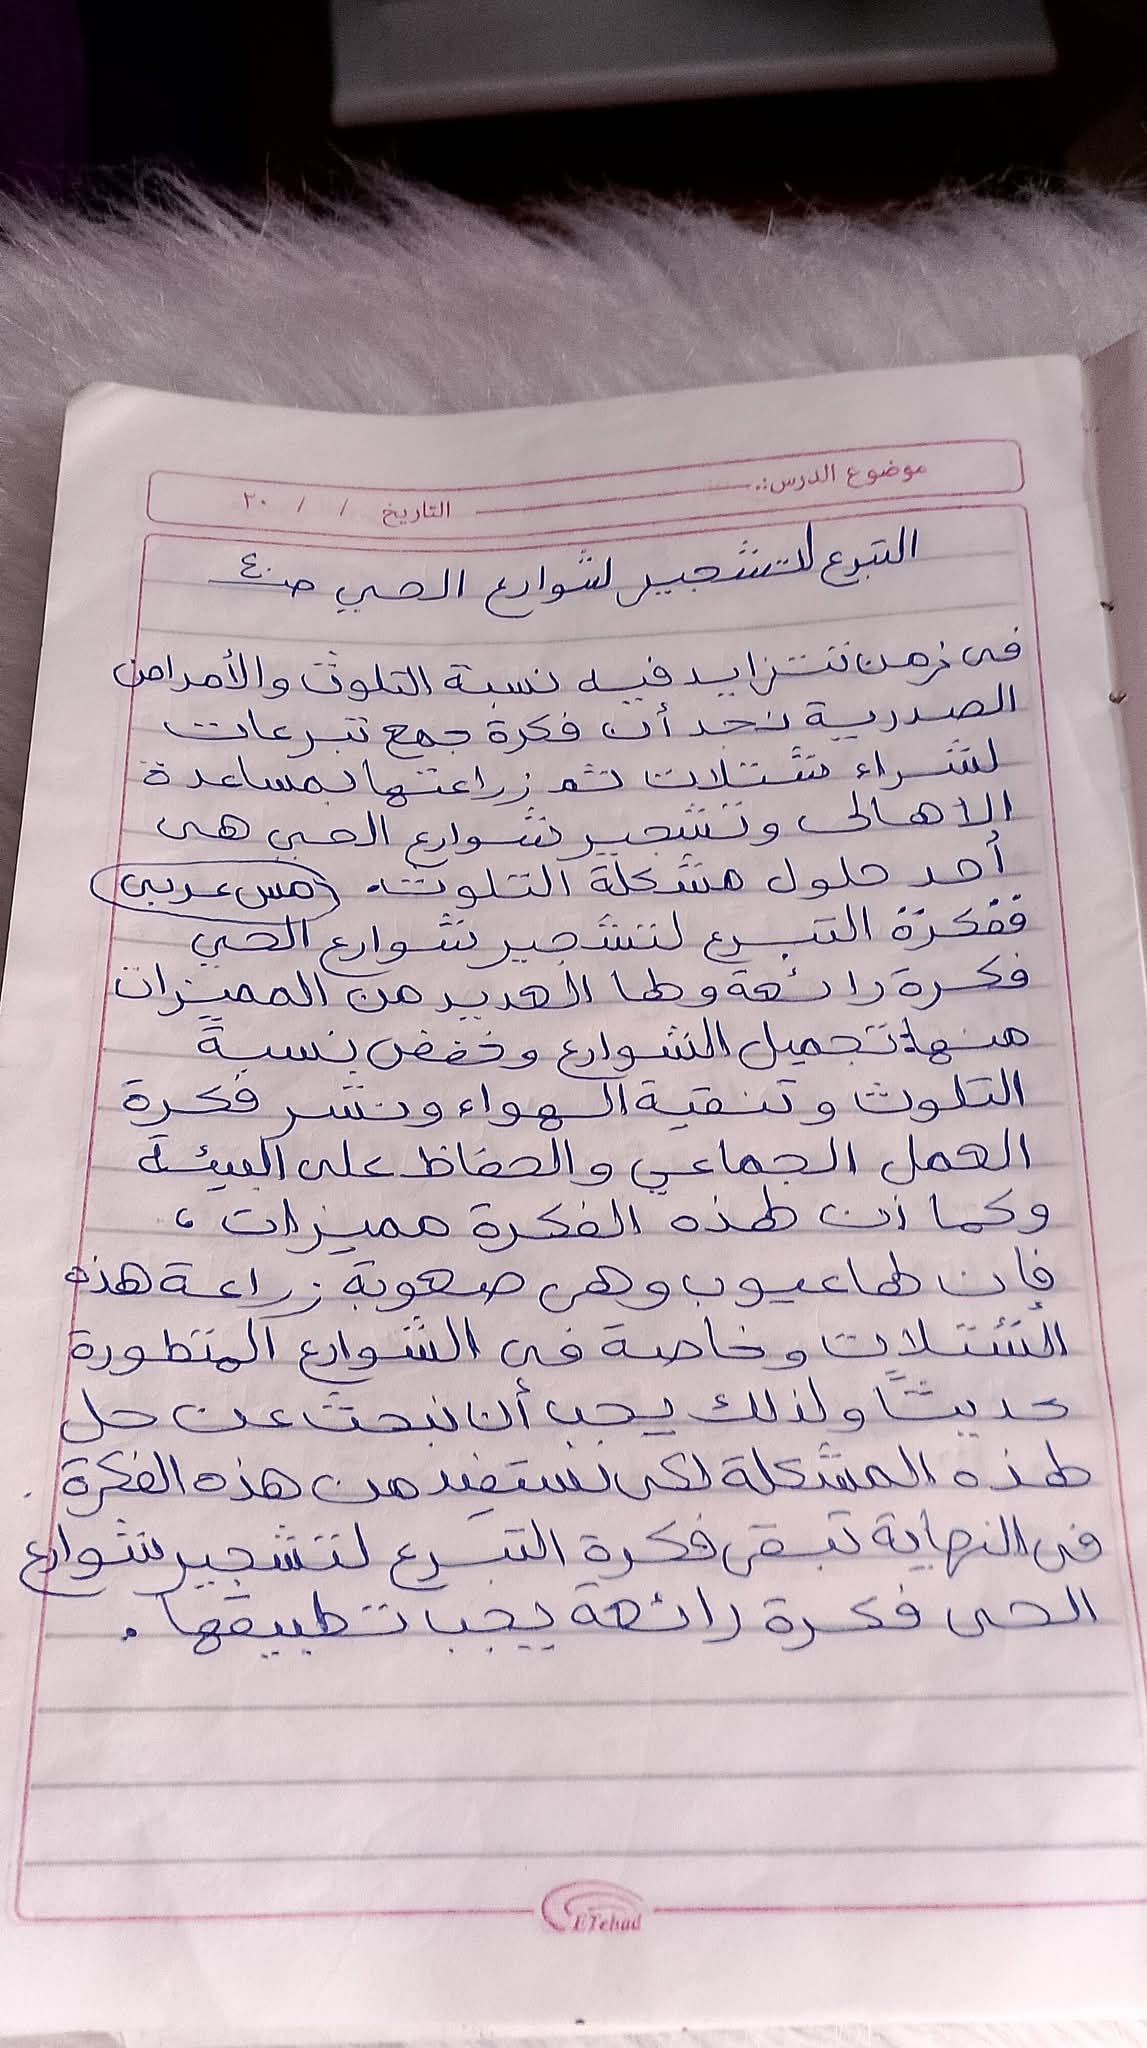 موضوع الدرس:
التاريخ / / ٢٠
التبرع لتشجير لشوارع الحي ص٤٠
فى زمن تتزايد فيه نسبة التلوث والأمراض
الصدرية نجد أن فكرة جمع تبرعات
لشراء شتلات ثم زراعتها بمساعدة
الاهالى وتشجير شوارع الحي هى
أحد حلول مشكلة التلوث. (مس عربي)
ففكرة التبرع لتشجير شوارع الحي
فكرة رائعة ولها العديد من المميزات
منها: تجميل الشوارع وخفض نسبة
التلوث وتنقية الهواء ونشر فكرة
العمل الجماعي والحفاظ على البيئة
وكما أن لهذه الفكرة مميزات،
فإن لها عيوب وهى صعوبة زراعة هذه
الشتلات وخاصة فى الشوارع المتطورة
حديثًا ولذلك يجب أن نبحث عن حل
لهذه المشكلة لكى نستفيد من هذه الفكرة.
فى النهاية تبقى فكرة التبرع لتشجير شوارع
الحى فكرة رائعة يجب تطبيقها.
ETehad